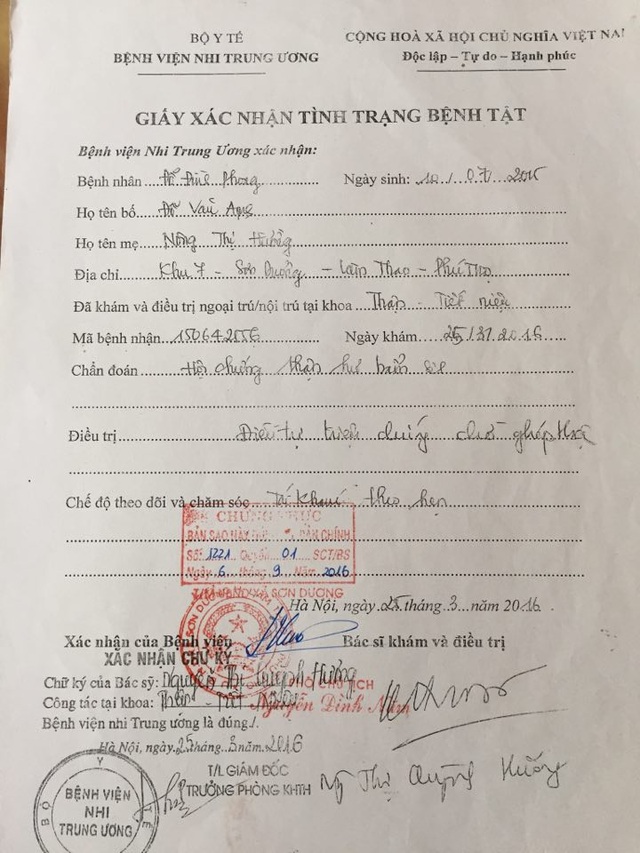 BỘ Y TẾ
BỆNH VIỆN NHI TRUNG ƯƠNG
CỘNG HOÀ XÃ HỘI CHỦ NGHĨA VIỆT NA
Độc lập – Tự do – Hạnh phúc
GIẤY XÁC NHẬN TÌNH TRẠNG BỆNH TẬT
Bệnh viện Nhi Trung Ương xác nhận:
Bệnh nhân Đỗ Đức Phong Ngày sinh: 10 / 07 2015
Họ tên bố Đỗ Văn
Họ tên mẹ Nông Thị Hường
Địa chỉ Khu 7 - Sơn Dương - Lâm Thao - Phú Thọ
Đã khám và điều trị ngoại trú/nội trú tại khoa Thận - Tiết niệu
Mã bệnh nhân 150642556 Ngày khám 25/3/2016
Chẩn đoán Hội chứng thận hư bẩm sinh
Điều trị Điều trị triệu chứng chờ ghép thận
Chế độ theo dõi và chăm sóc Tái khám theo hẹn
CHỨNG THỰC
BẢN SAO NÀY ĐÚNG BẢN CHÍNH
Số: 1221 Quyển 01 SCT/BS
Ngày 6 tháng 9 Năm 2016
SƠN DƯƠNG
Hà Nội, ngày 25 tháng 3 năm 2016
Xác nhận của Bệnh viện Bác sĩ khám và điều trị
XÁC NHẬN CHỮ KÝ
Chữ ký của Bác sỹ: Nguyễn Thị Quỳnh Hương
CHỦ TỊCH
Công tác tại khoa: Thận - Tiết niệu
Nguyễn Đình Nam
Bệnh viện nhi Trung ương là đúng./.
Hà Nội, ngày 25 tháng 3 năm 2016
T/L GIÁM ĐỐC
TRƯỞNG PHÒNG KHTH
Ng Thị Quỳnh Hương
BỘ Y TẾ
BỆNH VIỆN
NHI
TRUNG ƯƠNG